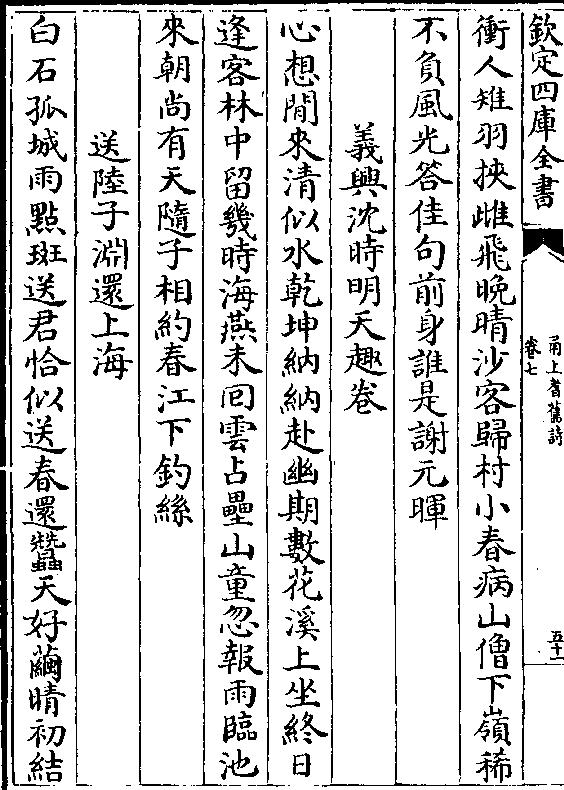 欽定四庫全書
甬上耆舊詩
卷七
五十一
衝人雉羽挾雌飛晚晴沙客歸村小春病山僧下嶺稀
不負風光答佳句前身誰是謝元暉
義興沈時明天趣卷
心想閒來清似水乾坤納納赴幽期數花溪上坐終日
逢客林中留幾時海燕未囘雲占壘山童忽報雨臨池
來朝尚有天隨子相約春江下釣絲
送陸子淵還上海
白石孤城雨點斑送君恰似送春還蠶天好繭晴初結